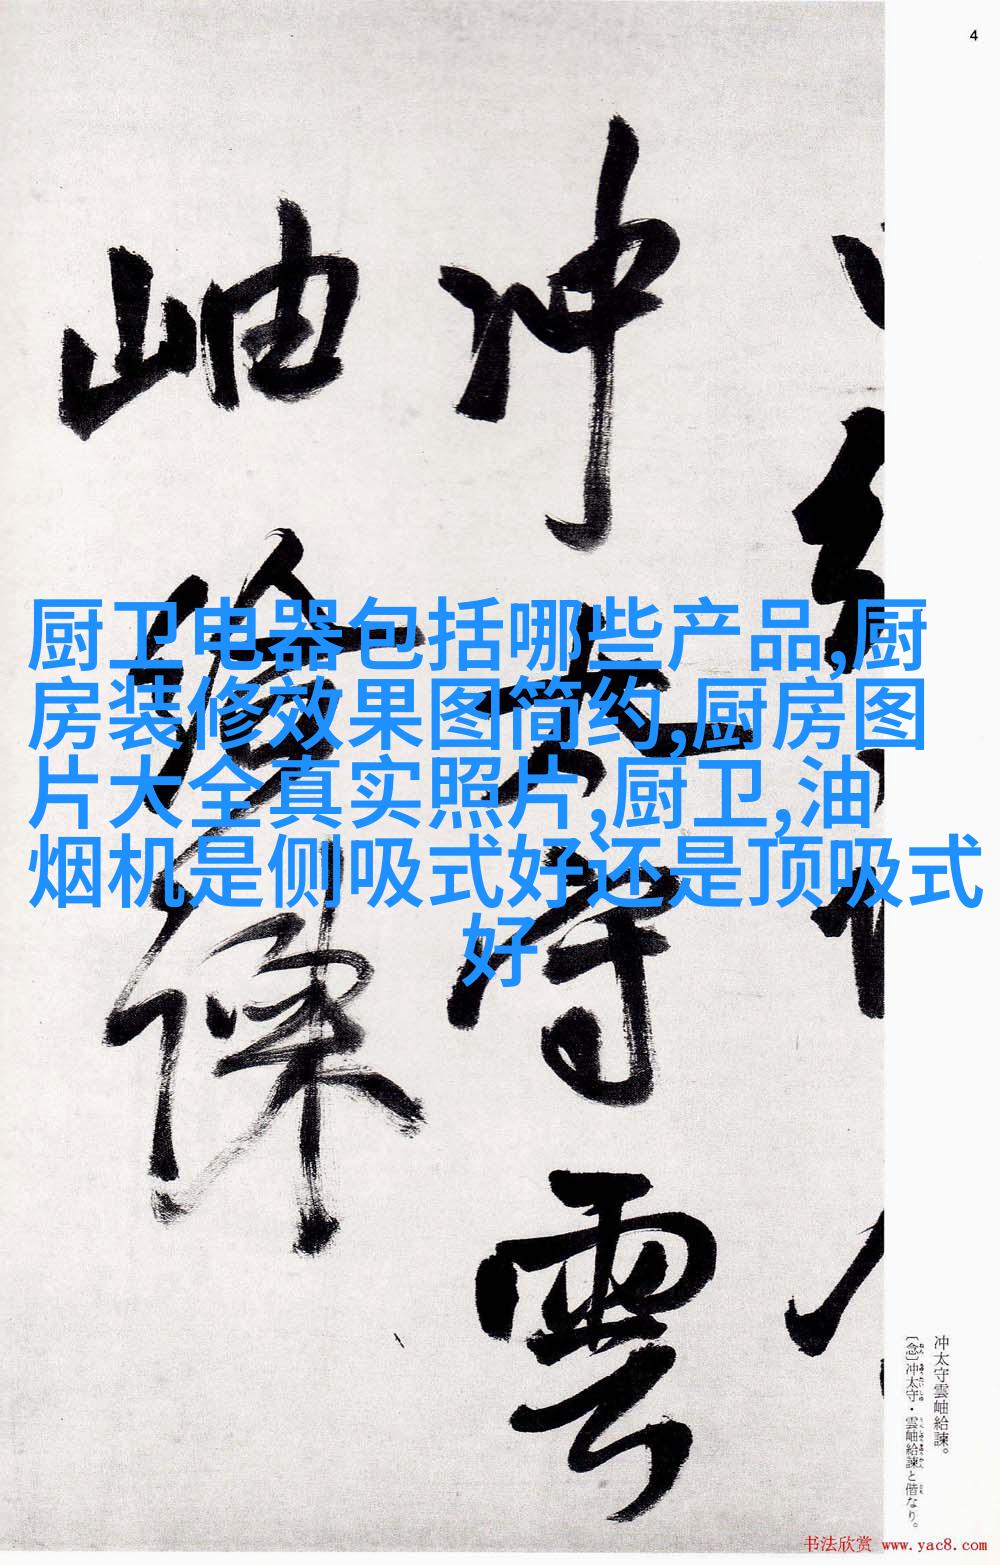 4
厨卫电器包括哪些产品,厨
房装修效果图简约,厨房图
片大全真实照片,厨卫,油
烟机是侧吸式好还是顶吸式
好
冲太守雲
岫給諫
冲太守雲岫給諫。
〔念〕冲太守・雲岫給諫と偕なり。
书法欣赏 www.yac8.com